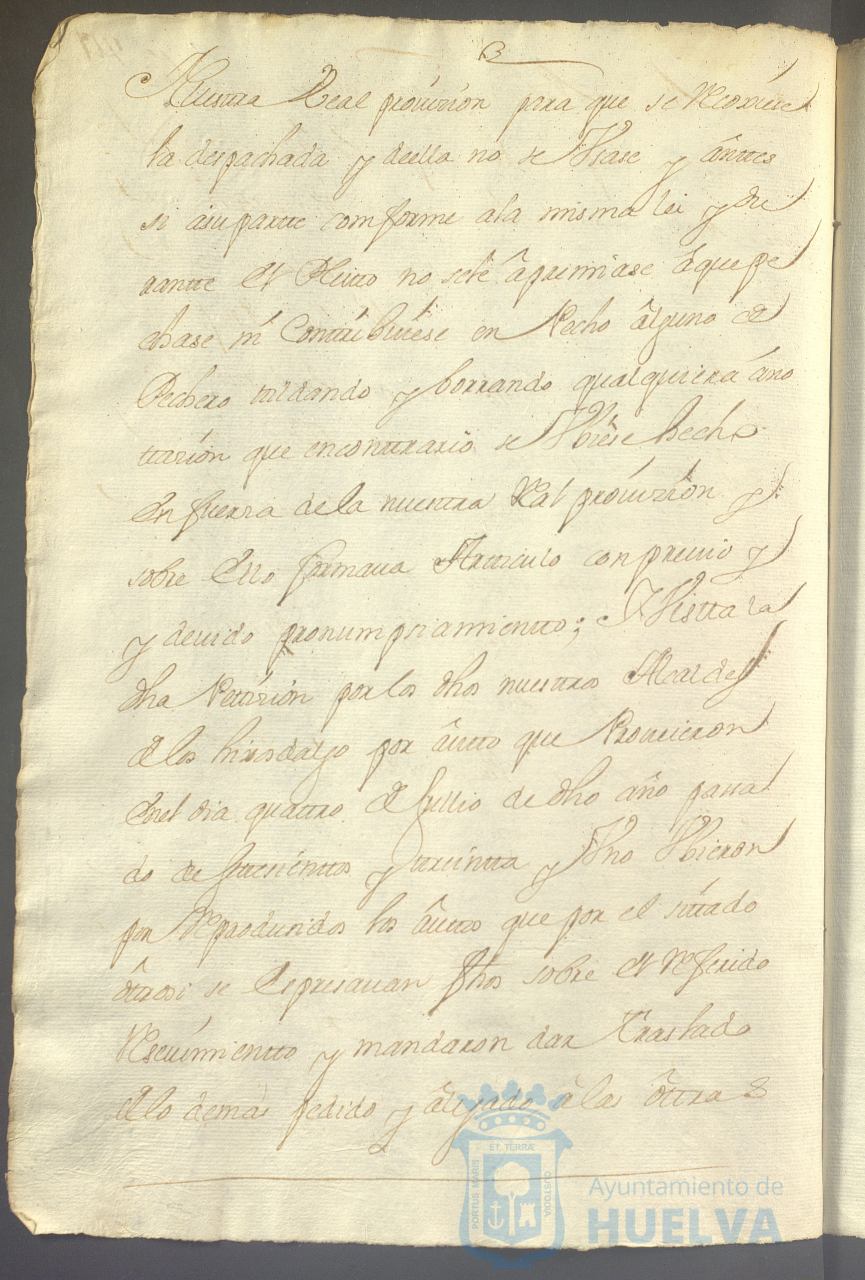 Nuestra Real prouizion para que se recoxiese
la despachada y deella no se Vsase y antes
si asu parte comforme ala misma lei y du
rante el Pleito no sele apremiase aque pe
chase ni Contribuiese en Pecho alguno de
Pechero tildando y borrando qualquiera ano
tazion que encontrario se Vbiese hecho
En fuerza de la nuestra Real prouizion y
sobre Ello formaua Articulo con preuio y
y deuido pronumpsiamiento; I Vista la
dha Petizion por los dhos nuestros Alcaldes
de los hixosdalgo por auto que Proueieron
Enel dia quatro de Jullio de dho año pasa
do de setecientos y treinta y Vno Vbieron
por Reproduzidos los autos que por el zitado
otrosi se Espresauan fhos sobre el referido
Reseuimiento y mandaron dar Traslado
de lo demas pedido y alegado a las otras
PORTUS MARIS
ET TERRAE
CUSTODIA
Ayuntamiento de
HUELVA